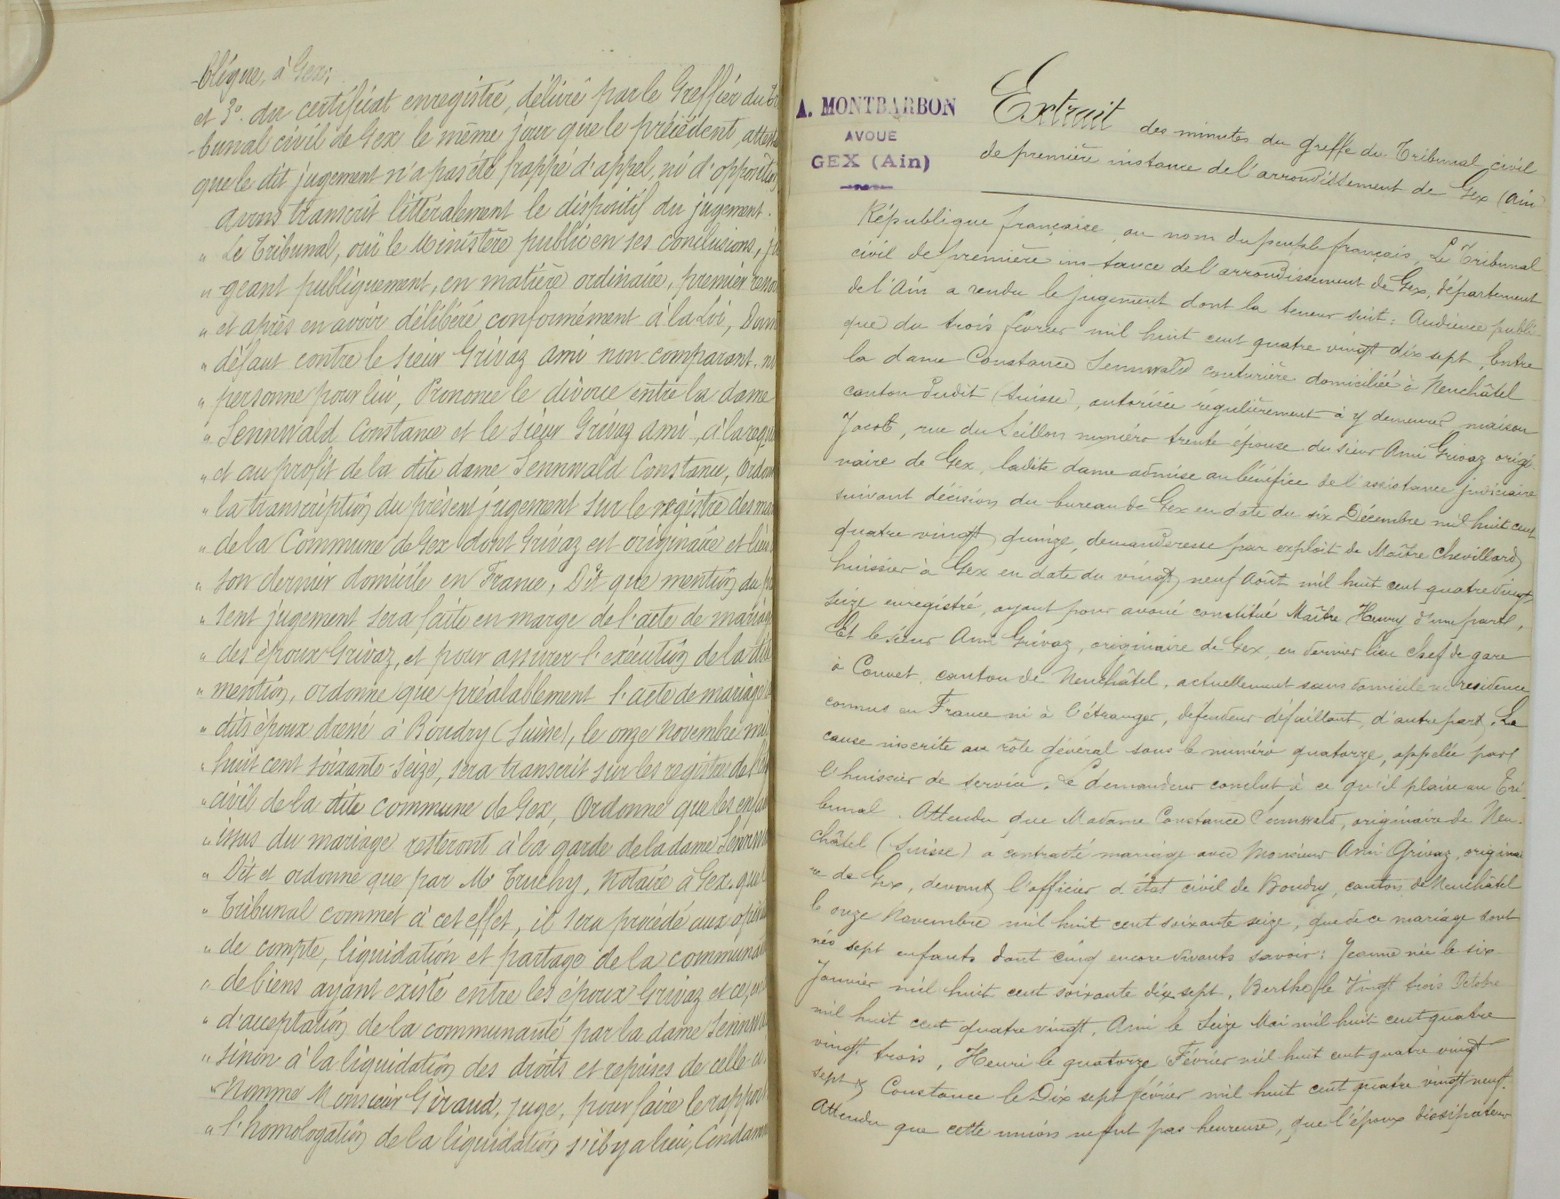 -blique, à Gex;
et 3º. du certificat enregistré, délivré par le Greffier du Tri
-bunal civil de Gex le même jour que le précédent, attest
que le dit jugement n'a pas été frappé d'appel, ni d'opposition
avons transcrit littéralement le dispositif du jugement.
„ Le Tribunal, ouï le Ministère public en ses conclusions, ju
„ -geant publiquement, en matière ordinaire, premier resso
„ et après en avoir délibéré conformément à la Loi, Donn
„ défaut contre le sieur Grivaz Ami non comparant ni
„ personne pour lui, Prononce le divorce entre la dame
„ Sennwald Constance et le Sieur Grivaz Ami, à la requ
„ et au profit de la dite dame Sennwald Constance, Ordon
„ la transcription du présent jugement sur le registre des mar
„ de la Commune de Gex dont Grivaz est originaire et lieu
„ son dernier domicile en France, Dit que mention du pré
„ sent jugement sera faite en marge de l'acte de mariage
„ des époux Grivaz, et pour assurer l'exécution de la dite
„ mention, ordonne que préalablement l'acte de mariage
„ dits époux dressé à Boudry (Suisse), le onze Novembre mil
„ huit cent soixante-seize, sera transcrit sur les registres de l'é
„ civil de la dite commune de Gex, Ordonne que les enfan
„ issus du mariage resteront à la garde de la dame Sennw
„ Dit et ordonne que par Me Truchy, Notaire à Gex, que l
„ Tribunal commet à cet effet, il sera procédé aux opéra
„ de compte, liquidation et partage de la communau
„ de biens ayant existé entre les époux Grivaz et ce, en
„ d'acceptation de la communauté par la dame Sennwa
„ sinon à la liquidation des droits et reprises de celle ci
„ Nomme Monsieur Giraud, juge, pour faire le rapport
„ l'homologation de la liquidation s'il y a lieu, Condamn
A. MONTBARBON
AVOUE
GEX (Ain)
Extrait des minutes du greffe du Tribunal civil
de première instance de l'arrondissement de Gex (Ain)
République française, au nom du peuple français, Le Tribunal
civil de première instance de l'arrondissement de Gex, département
de l'Ain a rendu le jugement dont la teneur suit: Audience publi
que du trois février mil huit cent quatre vingt dix sept, Entre
la dame Constance Sennwald couturière domiciliée à Neuchâtel
canton dudit (Suisse), autorisée regulièrement à y demeurer, maison
Jacot, rue du Seillon numéro trente épouse du sieur Ami Grivaz origi
naire de Gex, ladite dame admise au bénéfice de l'assistance judiciaire
suivant décision du bureau de Gex en date du six Décembre mil huit cent
quatre vingt quinze, demanderesse par exploit de Maître Chevillard
huissier à Gex en date du vingt neuf Août mil huit cent quatre vingt
seize enregistré, ayant pour avoué constitué Maître Henry d'une part,
Et le sieur Ami Grivaz, originaire de Gex, en dernier lieu chef de gare
à Couvet, canton de Neuchâtel, actuellement sans domicile ni residence
connus en France ni à l'étranger, défendeur défaillant, d'autre part, La
cause inscrite au rôle général sous le numéro quatorze, appelée par
l'huissier de service. Le demandeur conclut à ce qu'il plaise au Tri-
bunal. Attendu que Madame Constance Sennwald, originaire de Neu-
châtel (Suisse) a contracté mariage avec Monsieur Ami Grivaz, originai
re de Gex, devant l'officier d'état civil de Boudry, canton de Neuchâtel
le onze Novembre mil huit cent soixante seize, que de ce mariage sont
nés sept enfants dont cinq encore vivants savoir: Jeanne née le six
Janvier mil huit cent soixante dix sept, Berthe le Vingt trois Octobre
mil huit cent quatre vingt, Ami le Seize Mai mil huit cent quatre
vingt trois, Henri le quatorze Février mil huit cent quatre vingt
sept & Constance le Dix sept février mil huit cent quatre vingt neuf.
Attendu que cette union ne fut pas heureuse, que l'époux dissipateur